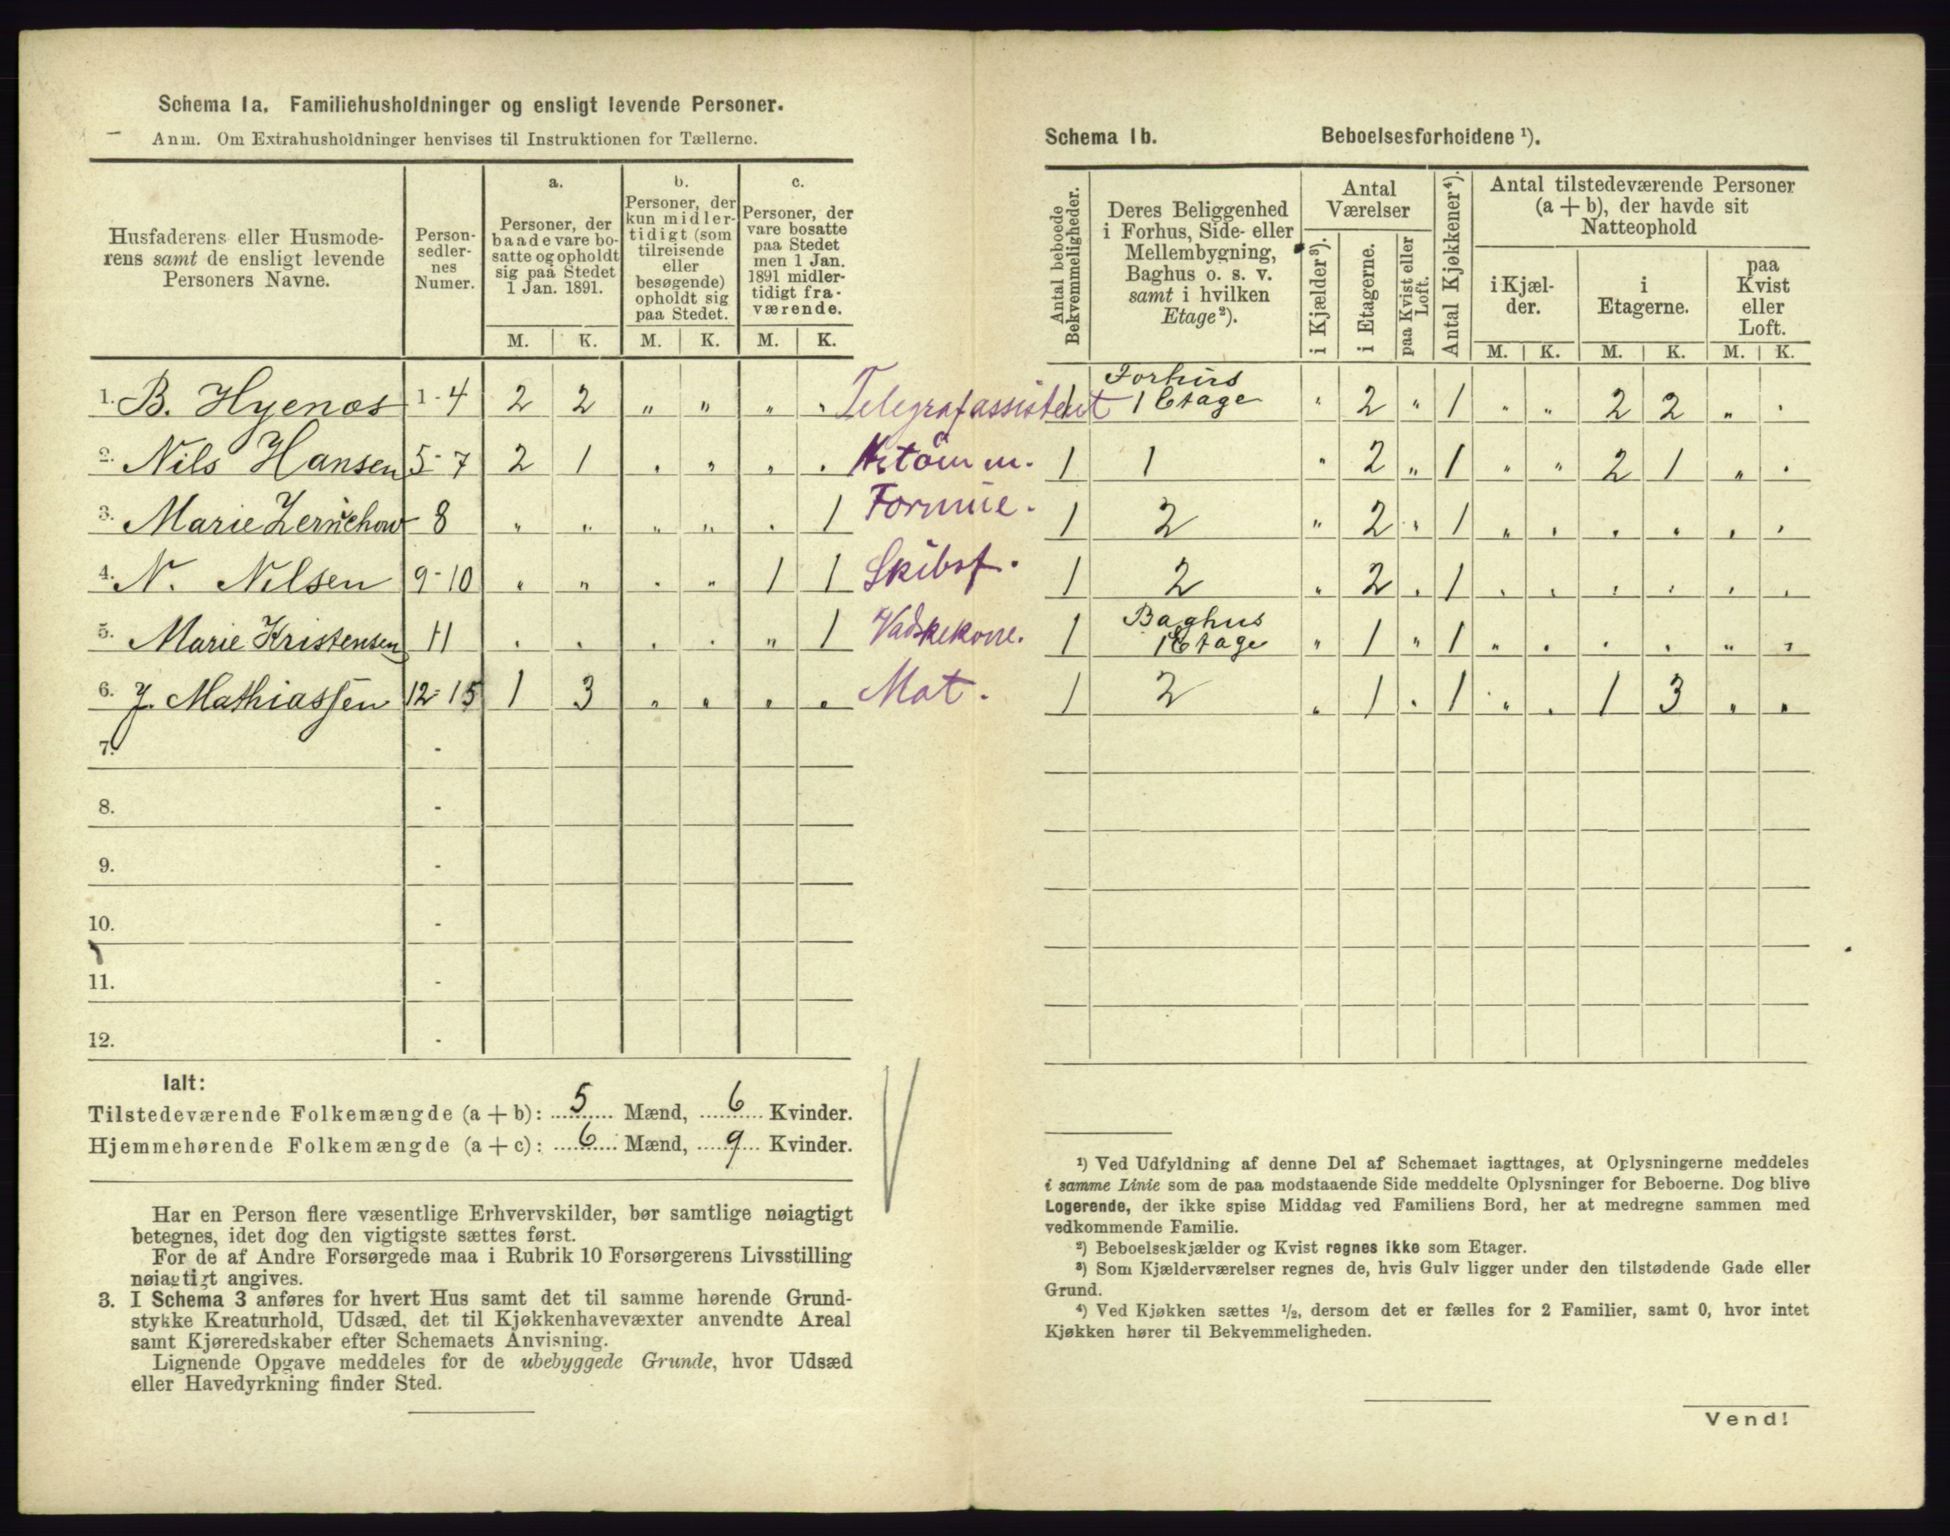 Schema 1a. Familiehusholdninger og ensligt levende Personer.
Anm. Om Extrahusholdninger henvises til Instruktionen for Tællerne.
Husfaderens eller Husmode-
rens samt de ensligt levende
Personers Navne.
Person-
sedler-
nes
Numer.
a.
Personer, der
baade vare bo-
satte og opholdt
sig paa Stedet
1 Jan. 1891.
b.
Personer, der
kun midler-
tidigt (som
tilreisende
eller
besøgende)
opholdt sig
paa Stedet.
c.
Personer, der
vare bosatte
paa Stedet
men 1 Jan.
1891 midler-
tidigt fra-
værende.
M. K. M. K. M. K.
1. B. Hyenæs 1-4 2 2 " " " " Telegrafassistent
2. Nils Hansen 5-7 2 1 " " " "
3. Marie Zernichow 8 " " " " " 1 Formue.
4. N. Nilsen 9-10 " " " " 1 1 Skibsf.
5. Marie Kristensen 11 " " " " " 1 Vadskekone.
6. J. Mathiassen 12-15 1 3 " " " " Mat.
7. -
8. -
9. -
10. -
11. -
12. -
Ialt:
Tilstedeværende Folkemængde (a + b): 5 Mænd, 6 Kvinder.
Hjemmehørende Folkemængde (a + c): 6 Mænd, 9 Kvinder.
Har en Person flere væsentlige Erhvervskilder, bør samtlige nøiagtigt
betegnes, idet dog den vigtigste sættes først.
For de af Andre Forsørgede maa i Rubrik 10 Forsørgerens Livsstilling
nøiagtigt angives.
3. I Schema 3 anføres for hvert Hus samt det til samme hørende Grund-
stykke Kreaturhold, Udsæd, det til Kjøkkenhavevæxter anvendte Areal
samt Kjøreredskaber efter Schemaets Anvisning.
Lignende Opgave meddeles for de ubebyggede Grunde, hvor Udsæd
eller Havedyrkning finder Sted.
Schema 1b. Beboelsesforholdene ¹).
Antal beboede
Bekvemmeligheder.
Deres Beliggenhed
i Forhus, Side- eller
Mellembygning,
Baghus o. s. v.
samt i hvilken
Etage²).
Antal
Værelser
i Kjælder³).
i Etagerne.
paa Kvist eller
Loft.
Antal Kjøkkener⁴).
Antal tilstedeværende Personer
(a + b), der havde sit
Natteophold
i Kjæl-
der.
i
Etagerne.
paa
Kvist
eller
Loft.
M. K. M. K. M. K.
1 Forhus
1 Etage " 2 " 1 " " 2 2 " "
1 1 " 2 " 1 " " 2 1 " "
1 2 " 2 " 1 " " " " " "
1 2 " 2 " 1 " " " " " "
1 Baghus
1 Etage " 1 " 1 " " " " " "
1 2 " 1 " 1 " " 1 3 " "
¹) Ved Udfyldning af denne Del af Schemaet iagttages, at Oplysningerne meddeles
i samme Linie som de paa modstaaende Side meddelte Oplysninger for Beboerne. Dog blive
Logerende, der ikke spise Middag ved Familiens Bord, her at medregne sammen med
vedkommende Familie.
²) Beboelseskjælder og Kvist regnes ikke som Etager.
³) Som Kjælderværelser regnes de, hvis Gulv ligger under den tilstødende Gade eller
Grund.
⁴) Ved Kjøkken sættes ½, dersom det er fælles for 2 Familier, samt 0, hvor intet
Kjøkken hører til Bekvemmeligheden.
Vend!